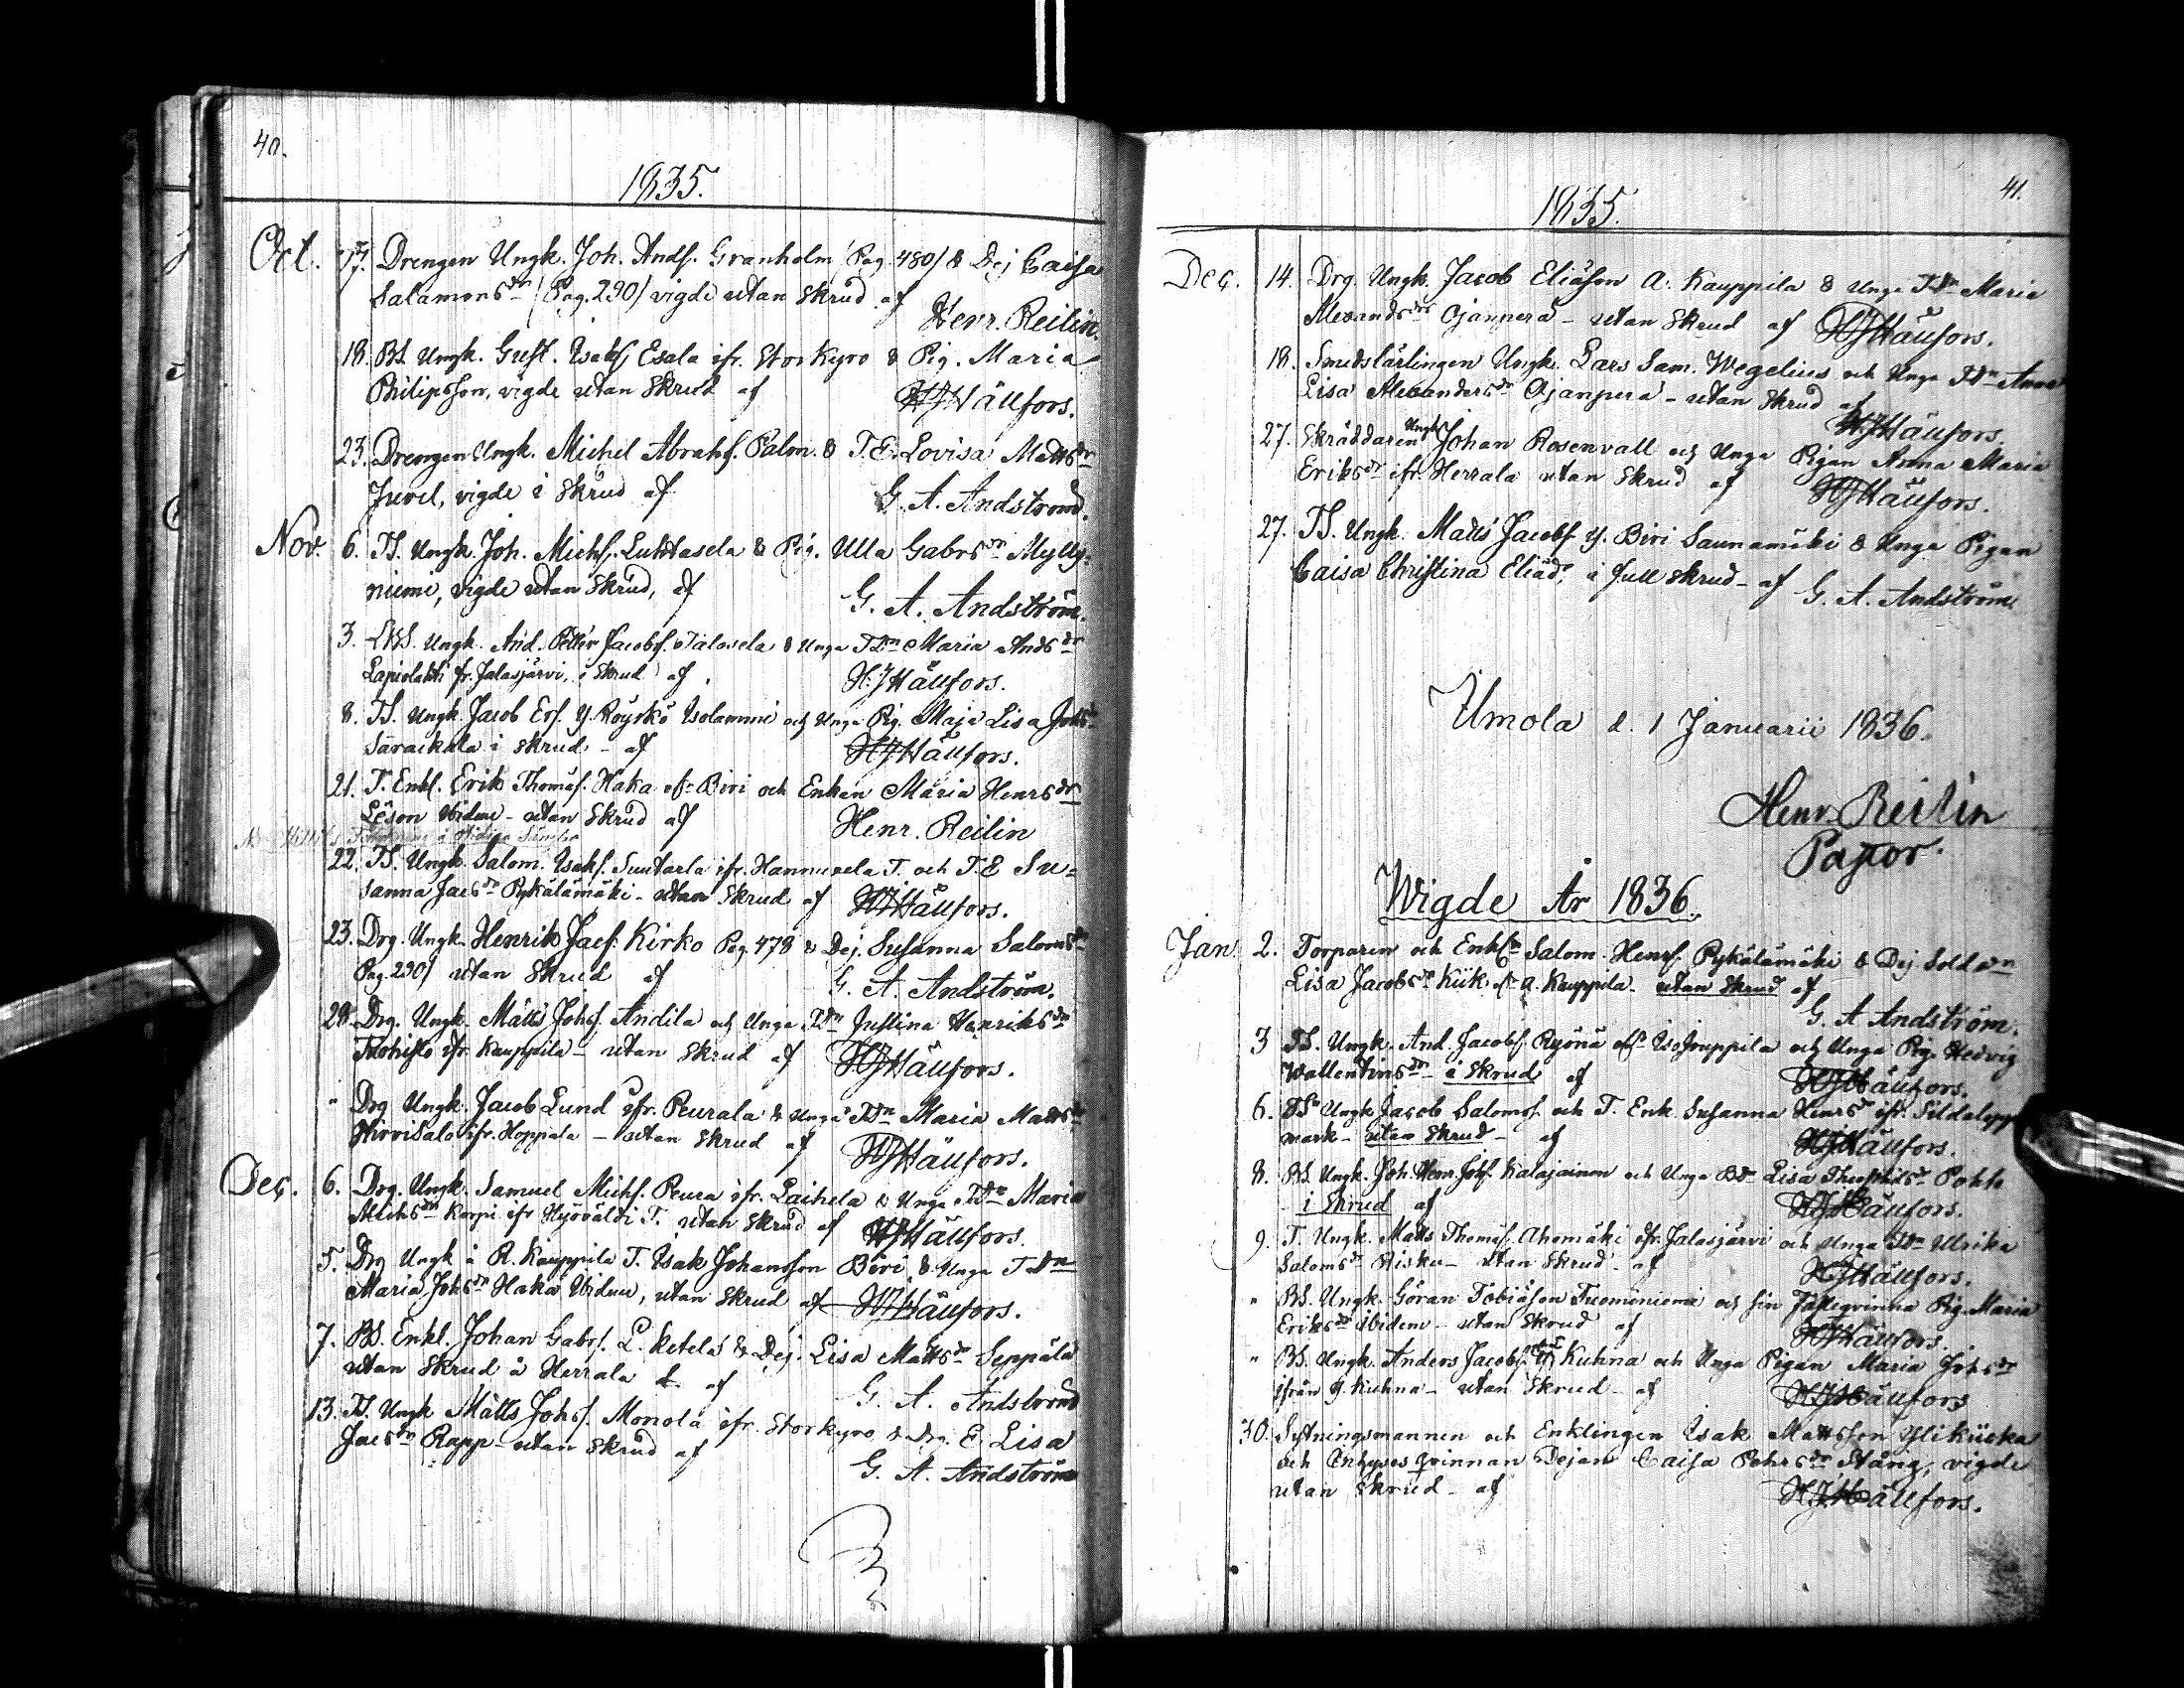 40.
1835.
Oct. 17. Drengen Ungk. Joh. Andf. Granholm (Pag. 480) & Dej Caisa
Salamonsdr (Pag. 290) vigde utan skrud af
Henr. Reilin.
18. BS. Ungk. Gust. Isakf. Esala ifr. Storkyro & Pig. Maria
Philipsson, vigde utan skrud af HJHällfors.
23. Drengen Ungk. Michel Abrahf. Palm. & T.E. Lovisa Mattsdr
Juvel, vigde i skrud af G. A. Andström.
Nov. 6. TS. Ungk. Joh. Michf. Luhtasela & Pig. Ulla Gabrsdr Mylly-
niemi, vigde utan skrud, af G. A. Andström.
3. Ungk. And. Petter Jacobf. Jalosela & Unga TDr Maria Andsdr
Lapiolahti fr. Jalasjärvi, i skrud af. HJHällfors.
8. TS. Ungk. Jacob Erf. Y. Röyskö Isolammi och Unga Pig. Maja Lisa Johs
Saraikkala i skrud - af HJHällfors.
21. T. Enkl. Erik Thomäf. Haka Biri och Enkan Maria Henrsdr
Leson ibidm - utan skrud af Henr. Reilin
22. TS. Ungk. Salom. Isakf. Suutarla ifr. Hannuxela T. och T.E Su-
sanna Jacsdr Pykälämäki - utan skrud af HJHällfors.
23. Drg. Ungk. Henrik Jacf. Kirko Pag. 478 & Dej. Susanna Salomsdr
Pag. 290) utan skrud af G. A. Andström.
28. Drg. Ungk. Matts Johf. Andila och Unga TDr Justina Henriksdr
ifr. Kauppila - utan skrud af HJHällfors.
" Drg Ungk. Jacob Lund ifr. Peurala & Unga TDr Maria Mattsdr
Hirvisalo ifr. Hoppala - utan skrud af HJHällfors.
Dec. 6. Drg. Ungk. Samuel Michf. Peura ifr. Laihela & Unga TDr Maria
Michsdr Karpi ifr Hyöväldi T. utan skrud af HJHällfors.
5. Drg Ungk å R. Kauppila T. Isak Johansson Biri & Unga TDr
Maria Johsdr Haka ibidm, utan skrud af HJHällfors.
7. BS. Enkl. Johan Gabrf. L. Ketela & Dej. Lisa Mattsdr Seppälä
utan skrud å Herrala af G. A. Andström
13. TS. Ungk Matts Johf. Monola ifr. Storkyro & Drg. E. Lisa
Jacsdr Rapp - utan skrud af G. A. Andström
41.
1835.
Dec. 14. Drg. Ungk. Jacob Eliäson A. Kauppila & Unga TDr Maria
Alexandsdr Ojanperä - utan skrud af HJHällfors.
18. Smedslärlingen Ungk. Lars Sam. Wegelius och Unga TDr Anna
Lisa Alexandersdr Ojanperä - utan skrud af
HJHällfors.
27. Skräddaren Ungk. Johan Rosenvall och Unga Pigan Anna Maria
Eriksdr ifr. Herrala utan skrud af HJHällfors.
27. TS. Ungk. Matts Jacobf. Y. Biri Saunamäki & Unga Pigan
Caisa Christina Eliäd. i full skrud - af G. A. Andström
Ilmola d. 1 Januarii 1836.
Henr. Reilin
Pastor.
Wigde År 1836.
Jan. 2. Torparen och Enkln Salom. Henrf. Pykälämäki & Dej Solddr
Lisa Jacobsdr Kiik A. Kauppila - utan skrud af
G. A Andström.
3 TS. Ungk. And. Jacobf. Ryönä Isojuppila och Unga Pig. Hedvig
Wallentinsdr - i skrud af HJHällfors.
6. TS. Ungk Jacob Salomof. och T. Enk. Susanna Henrsdr ifr. Sildalepp
mark - utan skrud - af HJHällfors.
8. BS. Ungk. Joh. Henr. Johf. Kalajainen och Unga BDr Lisa Theophilsdr Pohto
i skrud af HJHällfors.
9. T. Ungk. Matts Thomäf. Ahomäki ifr. Jalasjärvi och Unga TDr Ulrika
Salomsdr Risku - utan skrud - af HJHällfors.
" BS. Ungk. Göran Tobiäson Tuominiemi och sin Fästeqvinna Pig. Maria
Eriksdr ibidem - utan skrud af HJHällfors.
" BS. Ungk. Anders Jacobf. Kuhna och Unga Pigan Maria Johsdr
ifrån Y. Kuhna - utan skrud - af HJHällfors
30. Sytningsmannen och Enklingen Isak Mattsson Ylikiiska
och Enhyses qvinnan Dejan Caisa Pehrsdr Stång, vigde
utan skrud - af HJHällfors.